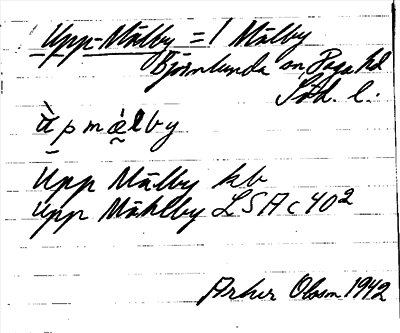 Upp-Mälby = 1 Mälby
Björnlunda sn, Daga hd
Söd. l.
ùpmæ̀lby
Upp Mälby kb
Upp Mählby LSA C 40²
Arthur Olsson 1942